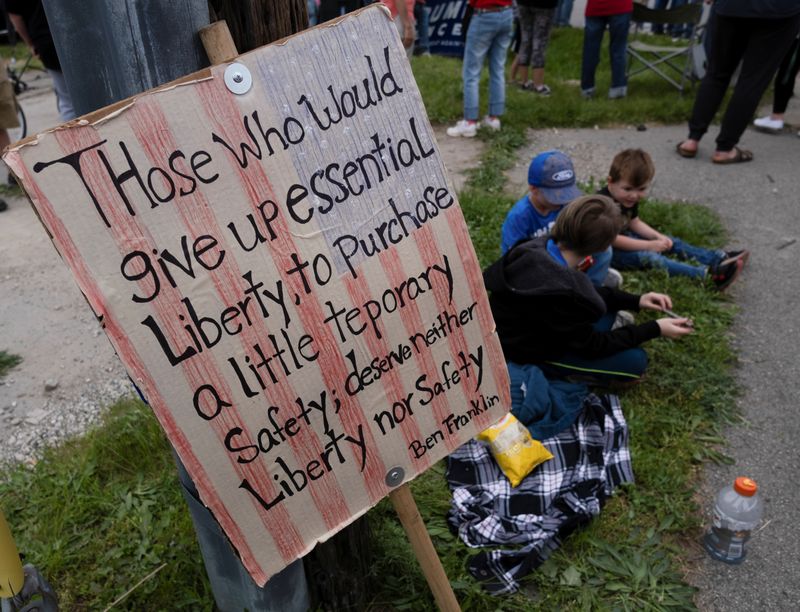 Those Who Would
give up essential
Liberty, to Purchase
a little teporary
Safety; deserve neither
Liberty nor Safety
Ben Franklin
Ford